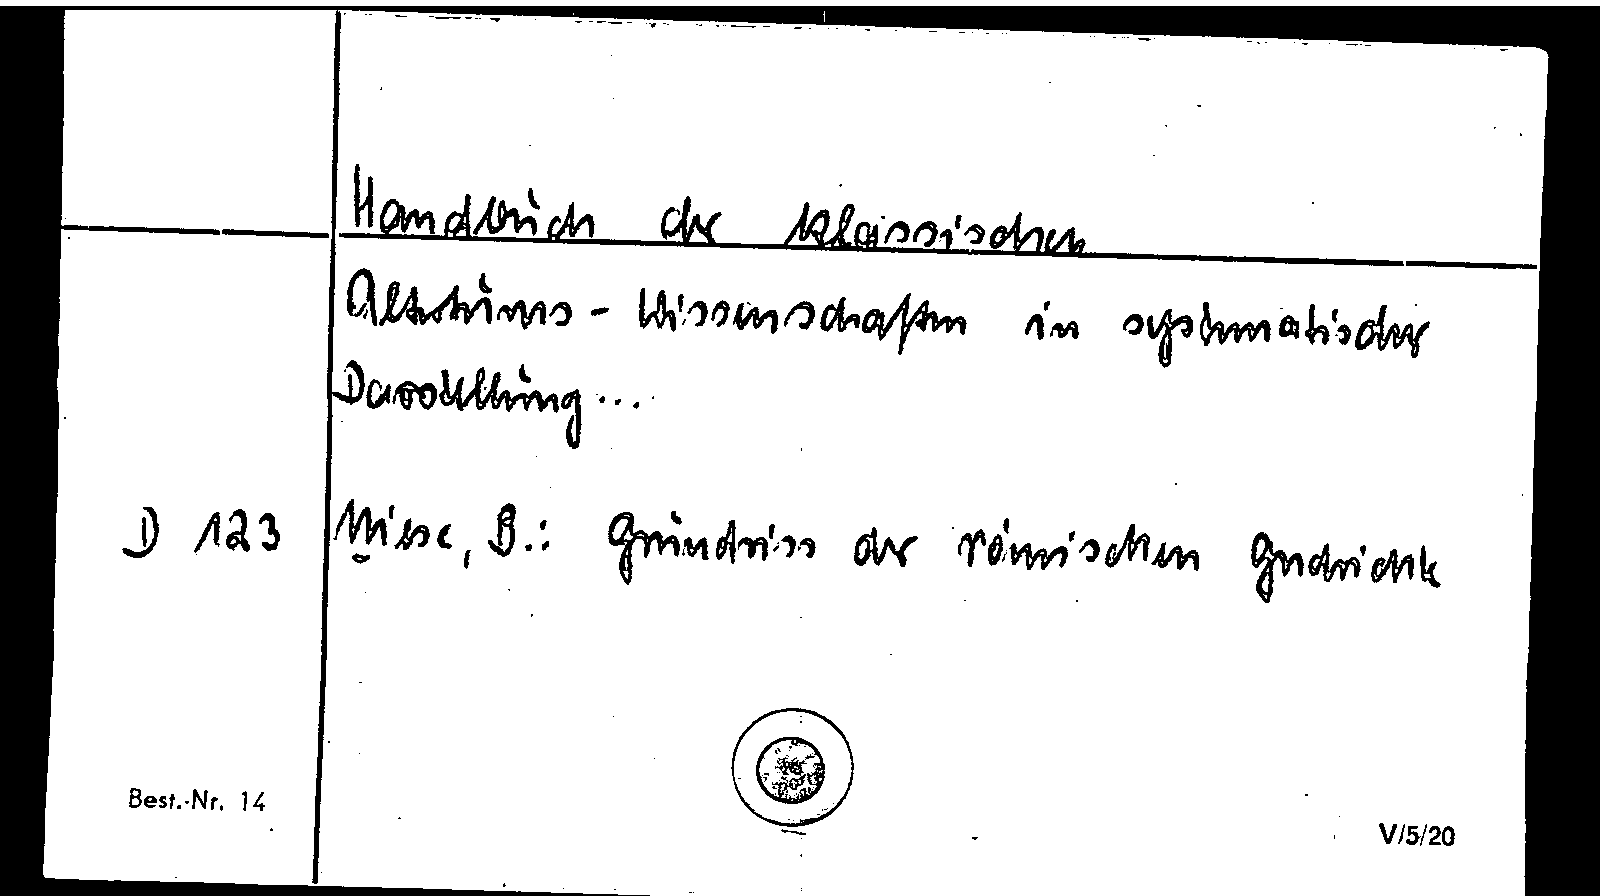 Handbuch der klassischen
Altertums-Wissenschaften in systematischer
Darstellung...
D 123 Niese, B.: Grundriss der römischen Geschichte
Best.-Nr. 14
V/5/20